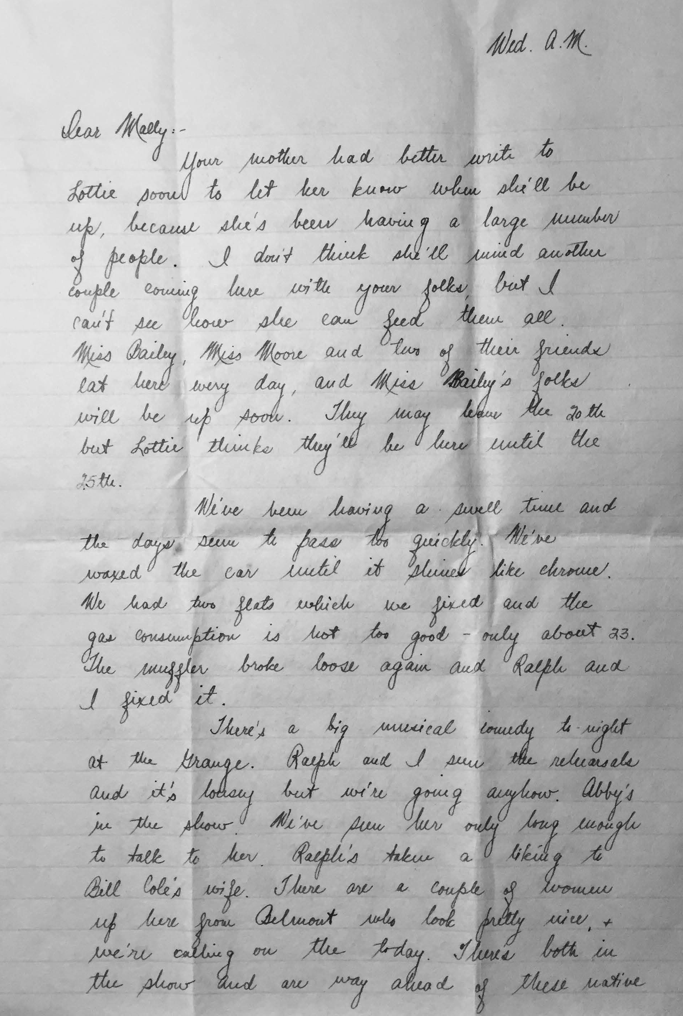 Wed. A.M.
Dear Mally:-
Your mother had better write to
Lottie soon to let her know when she'll be
up, because she's been having a large number
of people. I don't think she'll mind another
couple coming here with your folks, but I
can't see how she can feed them all.
Miss Bailey, Miss Moore and two of their friends
eat here every day, and Miss Bailey's folks
will be up soon. They may leave the 20th
but Lottie thinks they'll be here until the
25th.
We've been having a swell time and
the days seem to pass too quickly. We've
waxed the car until it shines like chrome.
We had two flats which we fixed and the
gas consumption is not too good - only about 23.
The muffler broke loose again and Ralph and
I fixed it.
There's a big musical comedy to-night
at the Grange. Ralph and I seen the rehearsals
and it's lousey but we're going anyhow. Abby's
in the show. We've seen her only long enough
to talk to her. Ralph's taken a liking to
Bill Cole's wife. There are a couple of women
up here from Belmont who look pretty nice, +
we're calling on the today. There's both in
the show and are way ahead of these native